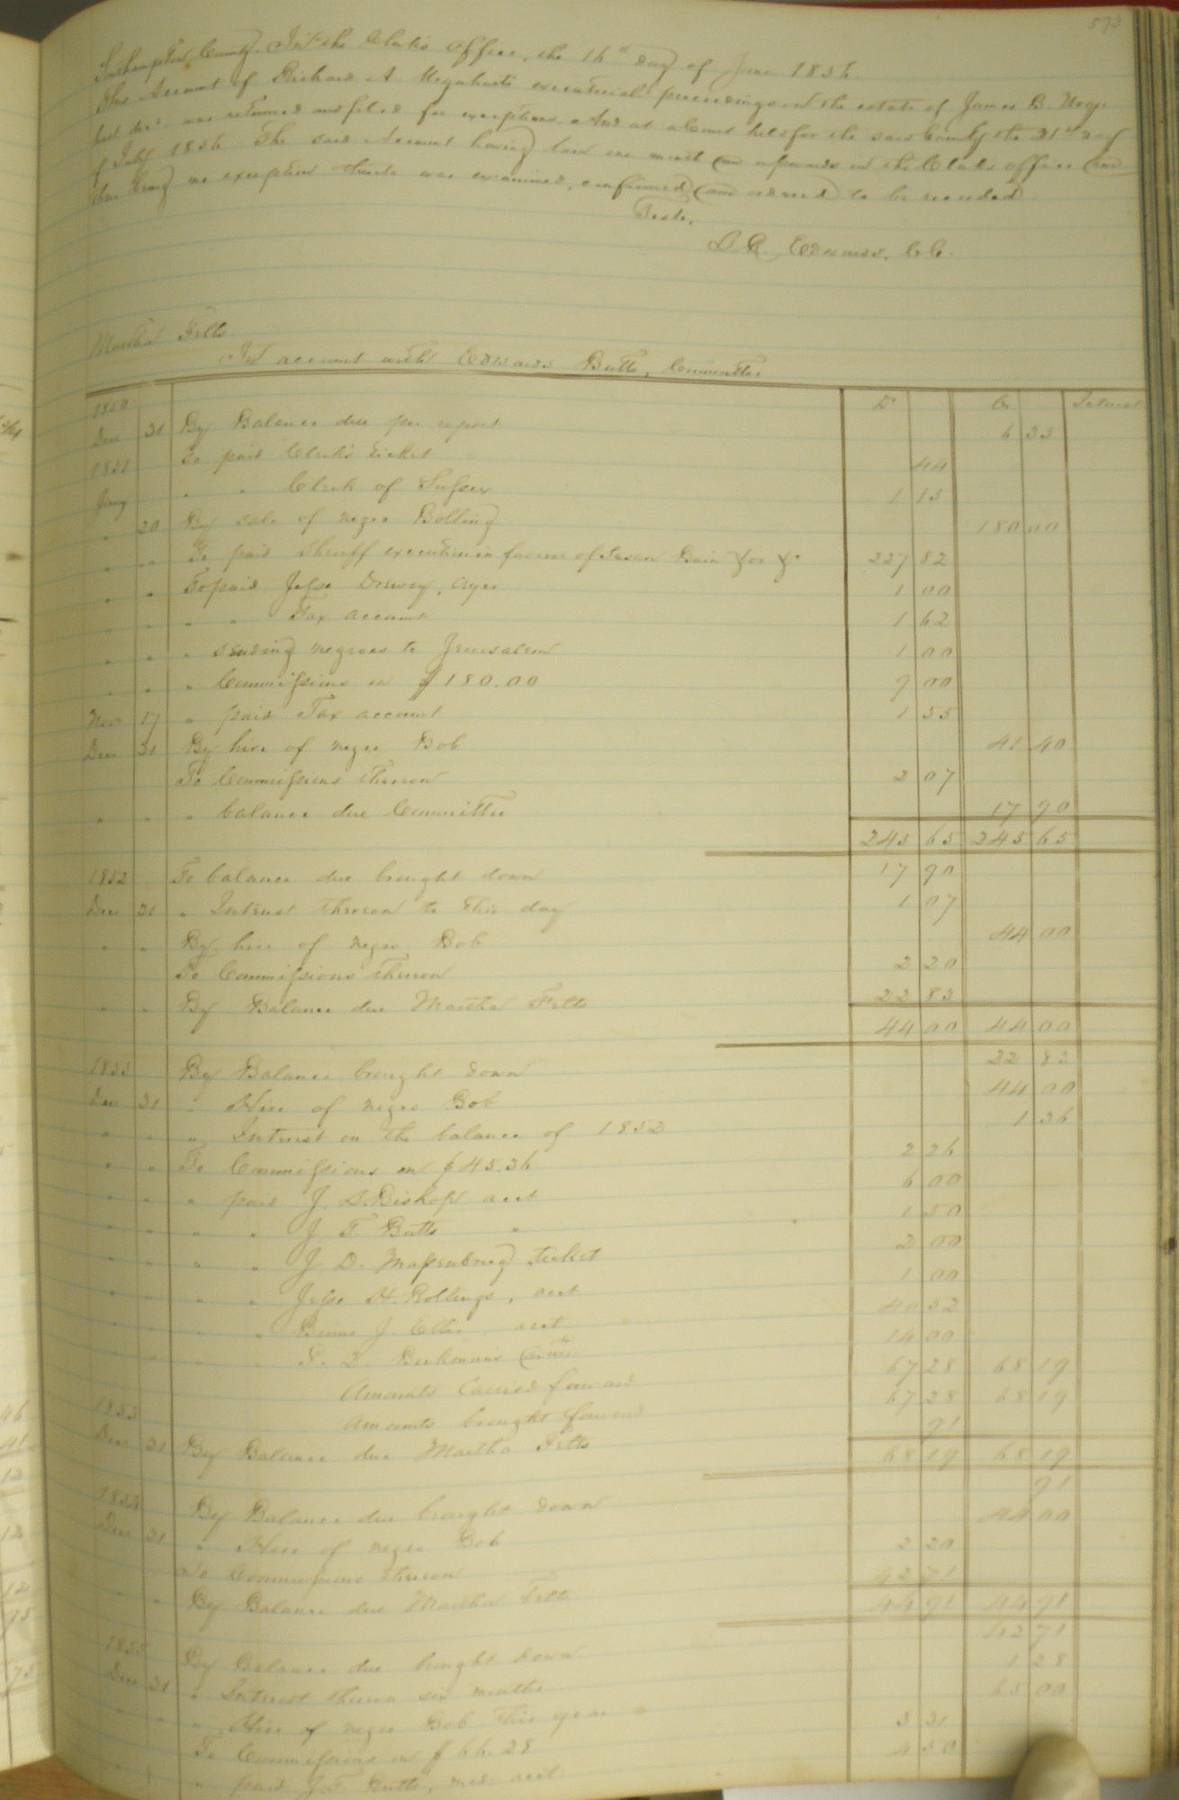 573
Southampton County. In the Clerk's office, the 16th day of June 1856.
This Account of Richard A Urquhart's executorial proceedings on the estate of James B. Urqu-
hart decd was returned and filed for exceptions. And at a Court held for the said County the 21st day
of July 1856 The said Account having laid one month and upwards in the Clerks office and
there being no exception thereto was examined, confirmed and ordered to be recorded
Teste.
L. R. Edwards, C.C.
Martha Felts
In account with Edward Butts, Committee
Dr Cr Interest
1850
Dec 31 By Balance due per report 6 35
1851 To paid Clerk's ticket 44
Jany " " Clerk of Sussex 1 15
" 20 By sale of negro Bolling 180 00
" " To paid Sheriff execution in favour of Susan Bain for &c 227 82
" " To paid Jesse Drewry, Cryer 1 00
" " " " Tax account 1 62
" " " sending negroes to Jerusalem 1 00
" " " Commissions on $180.00 9 00
Nov 17 " paid Tax account 1 55
Dec 31 By hire of negro Bob 41 40
To Commissions thereon 2 07
" " " balance due Committee 17 90
245 65 245 65
1852 To balance due brought down 17 90
Dec 31 " Interest thereon to this day 1 07
" " By hire of negro Bob 44 00
To Commissions thereon 2 20
" " By Balance due Martha Felts 22 83
44 00 44 00
1853 By Balance brought down 22 83
Dec 31 " Hire of negro Bob 44 00
" " " Interest on the balance of 1852 1 36
" " To Commissions on $45.36 2 26
" " " paid J. D. Bishop acct 6 00
" " " " J T Butts " 1 50
" " " J D. Massenburg ticket 2 00
" " " Jesse H. Rollings, acct 1 00
" " " J. Ellis acct 40 52
" " " 14 00
Amounts Carried forward 67 28 68 19
1853 Amounts brought forward 67 28 68 19
Dec 31 By Balance due Martha Felts 91
68 19 68 19
By Balance due brought down 91
Dec 31 " Hire of negro Bob 44 00
To Commissions thereon 2 20
" " By Balance due Martha Felts 42 71
44 91 44 91
1855 By Balance due brought down 42 71
Dec 31 " Interest thereon six months 1 28
" " " Hire of negro Bob this year 65 00
To Commissions on $66.28 3 31
" paid J.T. Butts, med. acct. 4 50